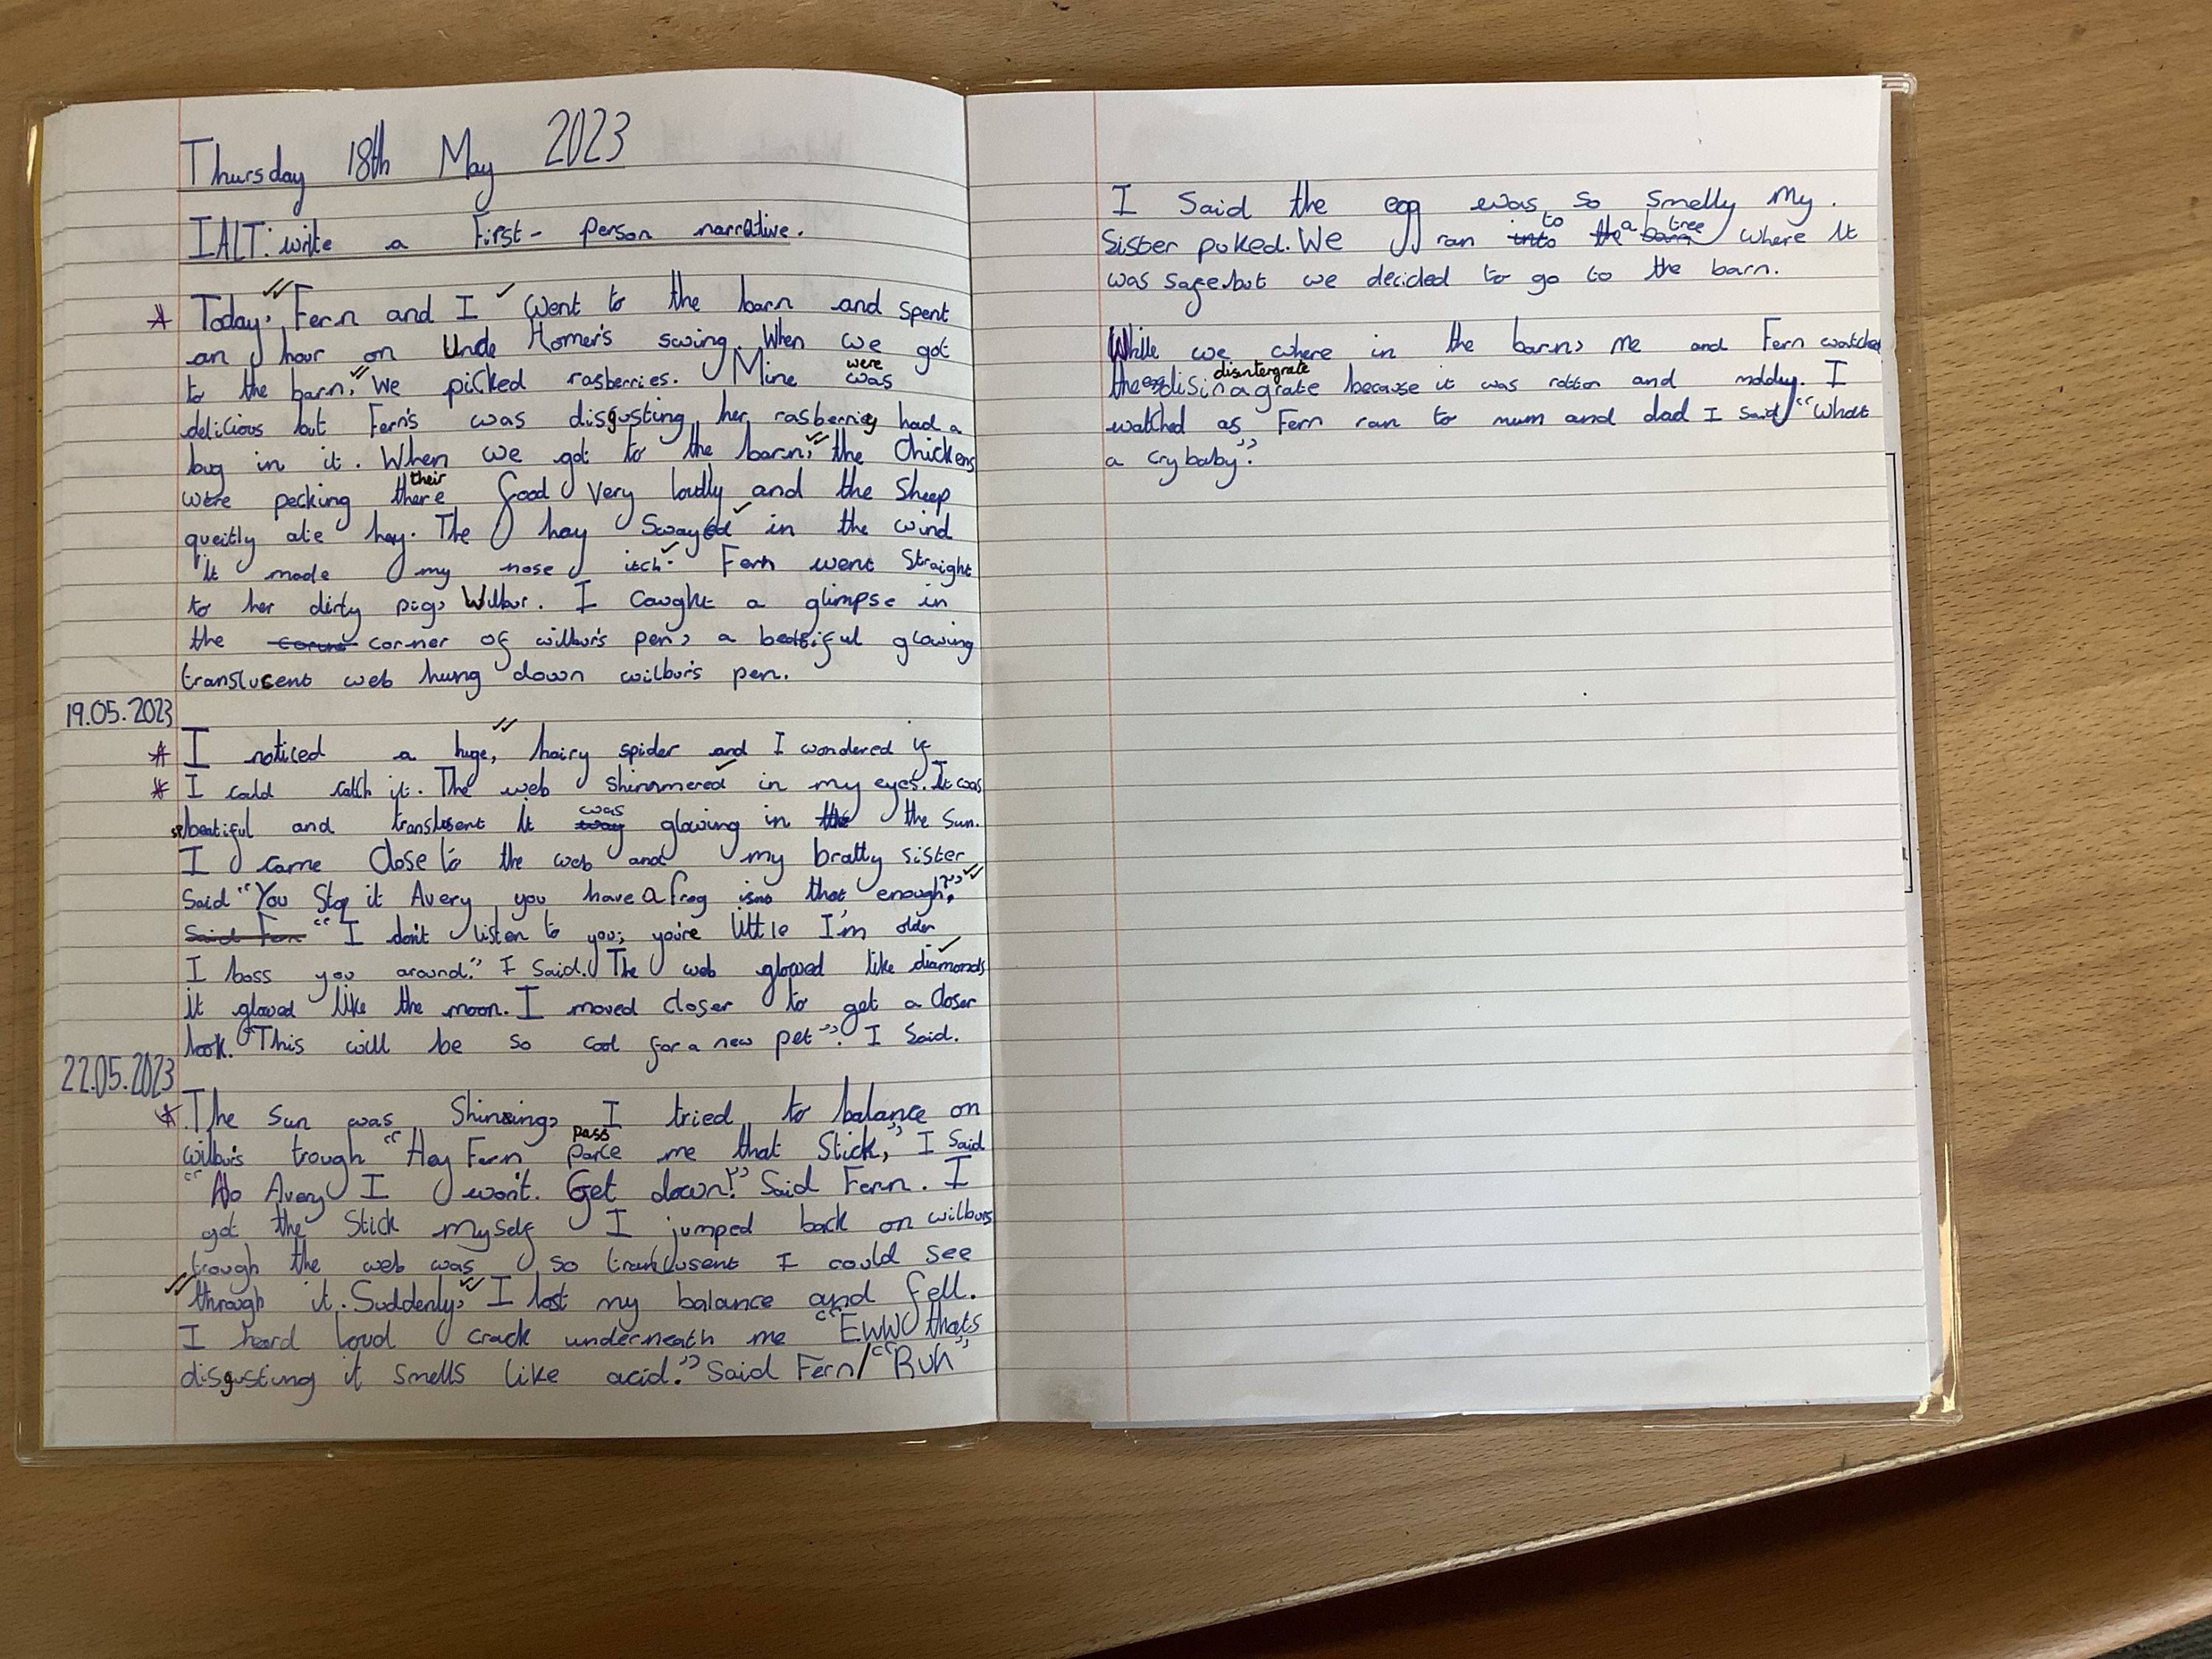 Thursday 18th May 2023
IALT: write a First- person narrative.
Today, Fern and I went to the barn and spent
an hour on Uncle Homer's swing. When we got
to the barn, we picked rasberries. Mine were was
delicious but Fern's was disgusting her rasberries had a
bug in it. When we got to the barn, the Chickens
were pecking their there food very loudly and the sheep
queitly ate hay. The hay swayed in the wind
It made my nose itch. Fern went straight
to her dirty pig, Wilbur. I caught a glimpse in
the corner of wilbur's pen, a beatiful glowing
translucent web hung down wilbur's pen.
19.05.2023
I noticed a huge, hairy spider and I wondered if
I could catch it. The web shimmered in my eyes. It was
sp beatiful and translusent It was glowing in the the Sun.
I came close to the web and my bratty sister
Said "You Stop it Avery you have a frog that enough?"
Said Fern "I don't listen to you; you're little I'm older
I boss you around." I said. The web glowed like diamonds
it glowed like the moon. I moved closer to get a closer
look. "This will be so cool for a new pet". I said.
22.05.2023
The sun was Shinsing, I tried to balance on
wilbur's trough "Hey Fern pass parce me that stick," I said
"No Avery I won't. Get down!" Said Fern. I
got the stick myself I jumped back on wilburs
trough the web was so translusent I could see
through it. Suddenly, I lost my balance and fell.
I heard loud crack underneath me "EWW thats
disgusting it smells like acid." Said Fern/ "Run"
I Said the egg was so smelly my.
Sister puked. We ran into to the a barn tree where it
was safe.but we decided to go to the barn.
While we where in the barn, me and Fern watched
the egg disinagrate disintergrate because it was rotton and moldy. I
watched as Fern ran to mum and dad I said "What
a cry baby."